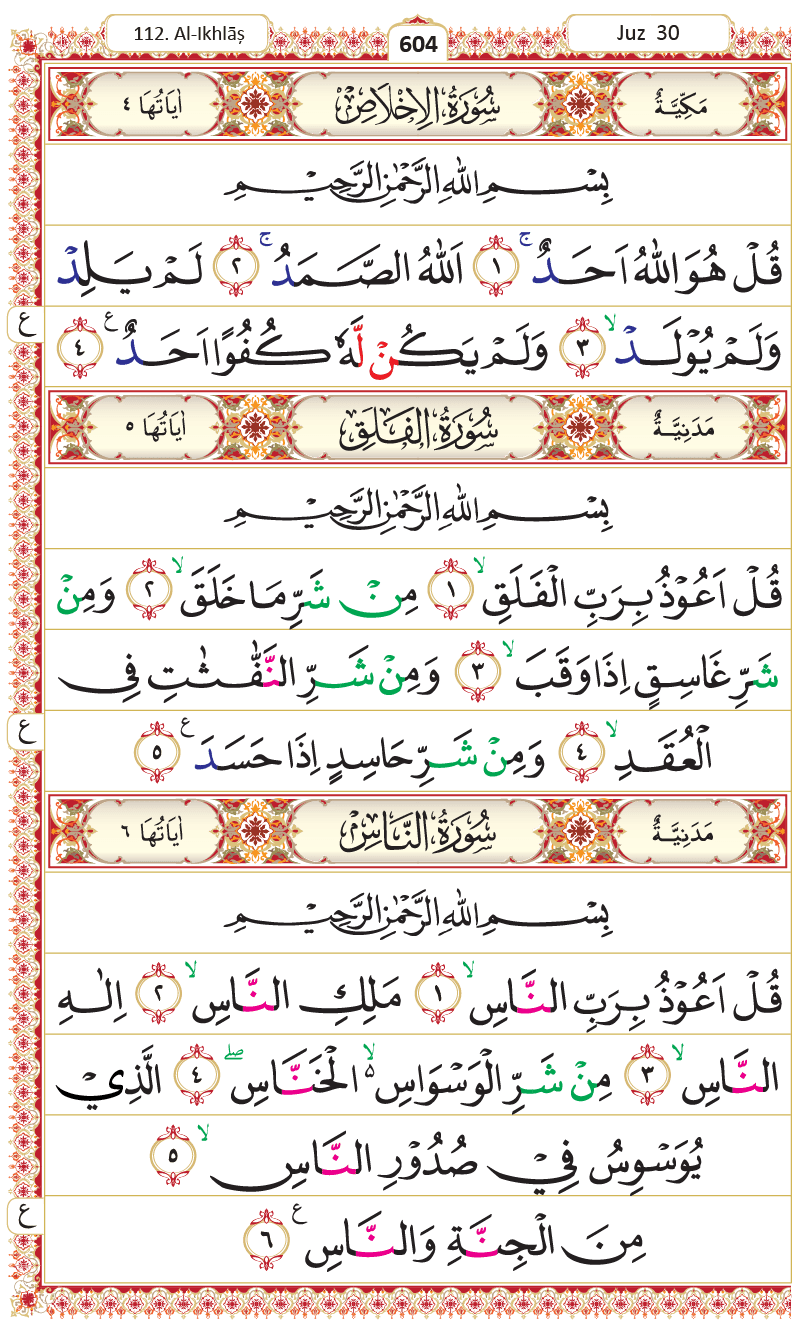 112. Al-Ikhlāṣ
604
Juz 30
مَكِّيَّةٌ سُورَةُ الْاِخْلَاصْ اٰيَاتُهَا ٤
بِسْمِ اللّٰهِ الرَّحْمٰنِ الرَّحِيْمِ
قُلْ هُوَ اللّٰهُ اَحَدٌ ۚ ١ اَللّٰهُ الصَّمَدُ ۚ ٢ لَمْ يَلِدْ
وَلَمْ يُوْلَدْ ۙ ٣ وَلَمْ يَكُنْ لَّهٗ كُفُوًا اَحَدٌ ع ٤
ع
مَدَنِيَّةٌ سُورَةُ الْفَلَقِ اٰيَاتُهَا ٥
بِسْمِ اللّٰهِ الرَّحْمٰنِ الرَّحِيْمِ
قُلْ اَعُوْذُ بِرَبِّ الْفَلَقِ ۙ ١ مِنْ شَرِّ مَا خَلَقَ ۙ ٢ وَمِنْ
شَرِّ غَاسِقٍ اِذَا وَقَبَ ۙ ٣ وَمِنْ شَرِّ النَّفّٰثٰتِ فِى
الْعُقَدِ ۙ ٤ وَمِنْ شَرِّ حَاسِدٍ اِذَا حَسَدَ ع ٥
ع
مَدَنِيَّةٌ سُورَةُ النَّاسْ اٰيَاتُهَا ٦
بِسْمِ اللّٰهِ الرَّحْمٰنِ الرَّحِيْمِ
قُلْ اَعُوْذُ بِرَبِّ النَّاسِ ۙ ١ مَلِكِ النَّاسِ ۙ ٢ اِلٰهِ
النَّاسِ ۙ ٣ مِنْ شَرِّ الْوَسْوَاسِ ەۙ الْخَنَّاسِ ۖ ٤ الَّذِيْ
يُوَسْوِسُ فِيْ صُدُوْرِ النَّاسِ ۙ ٥
مِنَ الْجِنَّةِ وَالنَّاسِ ع ٦
ع